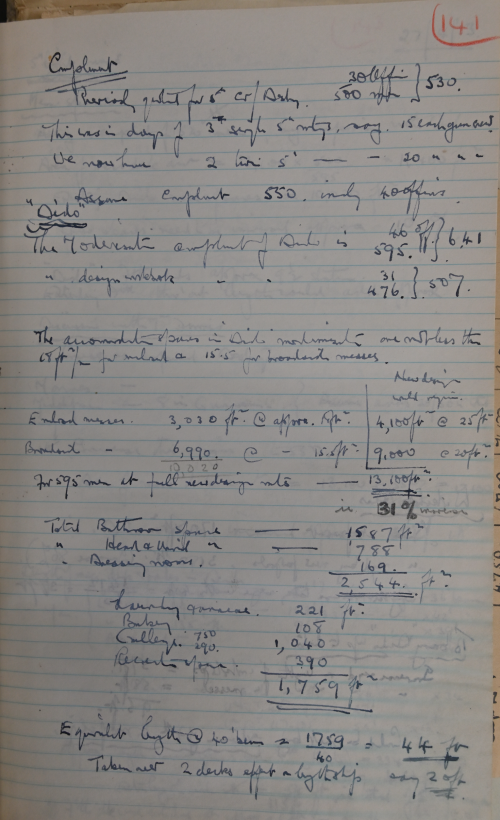 141
Complement
Previously quoted for 5" Cr/Dido. 30 Offrs 500 men } 530.
This was in days of 3 single 5" mtgs, say 15 each gun crew
We now have 2 twin 5" — - 20 " " "
Assume Complement 550. incly 40 offrs.
"Dido"
The Modernisation complement of Dido is 46 off. 595. } 641
" design " " 31 476. } 507.
The accommodation spaces in Dido modernisation are not less than
18 ft² for & 15.5 for broadside messes.
New design
Enclosed messes. 3,030 ft² @ approx. ft² 4,100 ft² @ 25 ft²
Broadside " 6,990. @ - 15.5 ft² 9,000 @ 20 ft²
10,020
For 595 men at full new design rates — 13,100 ft²
is 31% increase
Total Bathroom space — 1587 ft²
" Heads & " — 788
" Dressing rooms. 169.
2,544. ft²
Laundry 221 ft²
Bakery 108
Galleys. 750 290. 1,040
Recreation space. 390
1,759 ft²
Equivalent length @ 40' beam = 1759 / 40 = 44 ft
Taken over 2 decks effect on length ship say 20 ft